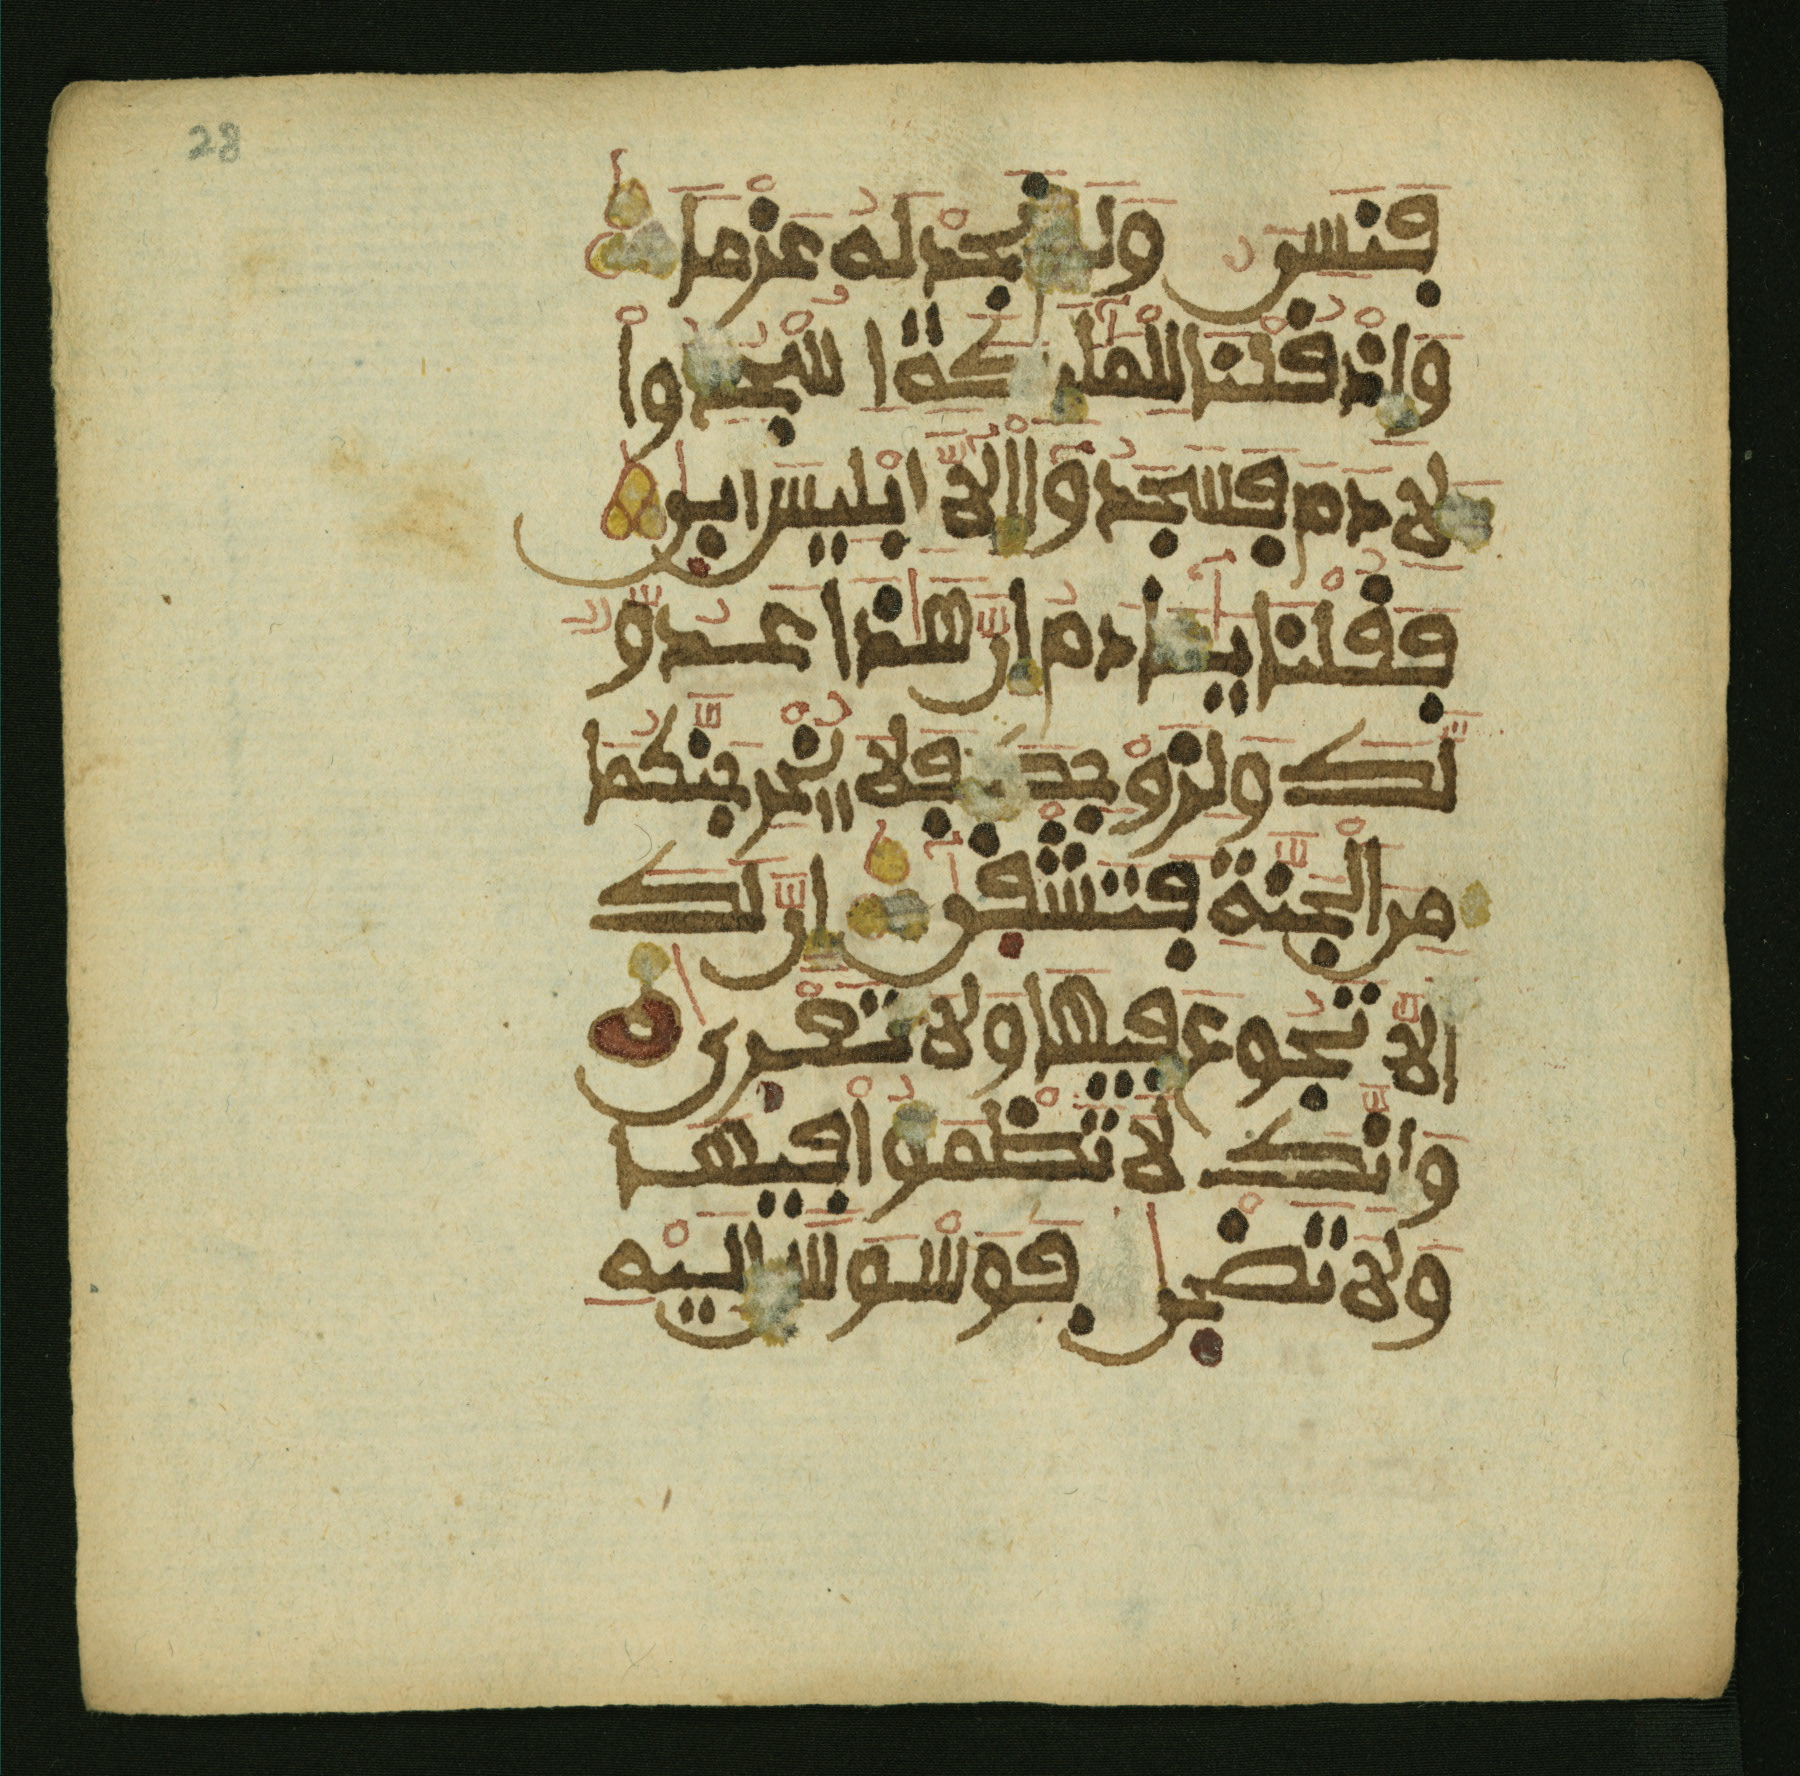 28
فنسى ولم نجد له عزما
واذ قلنا للملئكة اسجدوا
لادم فسجدوا الا ابليس ابى
فقلنا يادم ان هذا عدو
لك ولزوجك فلا يخرجنكما
من الجنة فتشقى ان لك
الا تجوع فيها ولا تعرى
وانك لا تظموا فيها
ولا تضحى فوسوس اليه